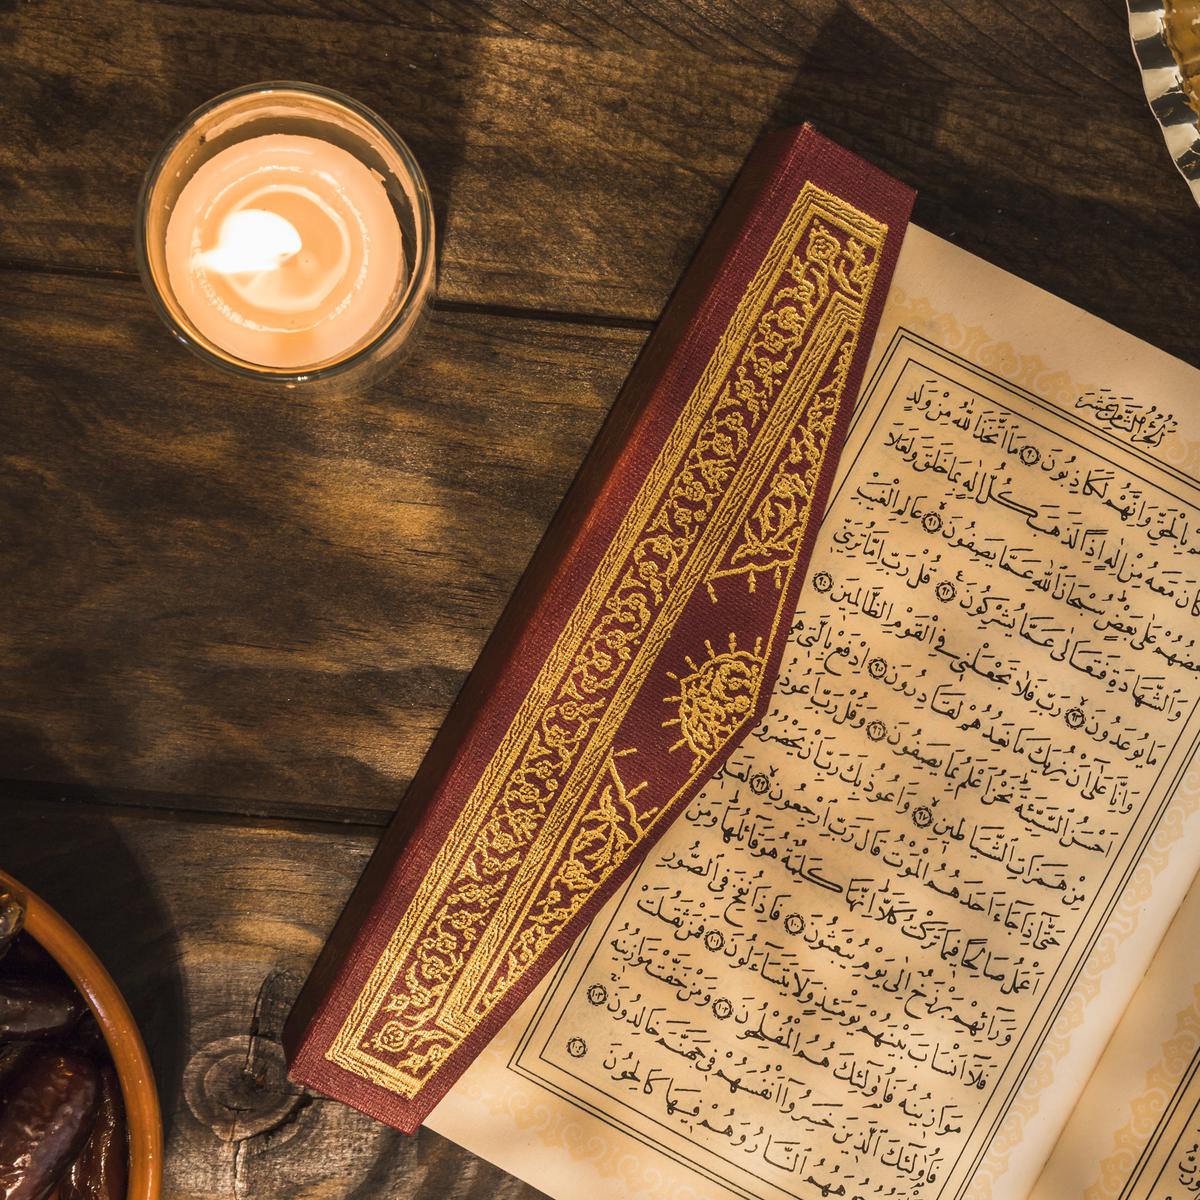 الجُزْءُ الثَّامِنَ عَشَرَ
بِالْحَقِّ وَاِنَّهُمْ لَكَاذِبُونَ ٩٠ مَا اتَّخَذَ اللّٰهُ مِنْ وَلَدٍ
كَانَ مَعَهُ مِنْ اِلٰهٍ اِذًا لَذَهَبَ كُلُّ اِلٰهٍ بِمَا خَلَقَ وَلَعَلَا
عَلٰى بَعْضٍ سُبْحَانَ اللّٰهِ عَمَّا يَصِفُونَ ٩١ عَالِمِ الْغَيْبِ
وَالشَّهَادَةِ فَتَعَالٰى عَمَّا يُشْرِكُونَ ٩٢ قُلْ رَبِّ اِمَّا تُرِيَنِّي
مَا يُوعَدُونَ ٩٣ رَبِّ فَلَا تَجْعَلْنِي فِي الْقَوْمِ الظَّالِمِينَ ٩٤
وَاِنَّا عَلٰى اَنْ نُرِيَكَ مَا نَعِدُهُمْ لَقَادِرُونَ ٩٥ اِدْفَعْ بِالَّتِي هِيَ
اَحْسَنُ السَّيِّئَةَ نَحْنُ اَعْلَمُ بِمَا يَصِفُونَ ٩٦ وَقُلْ رَبِّ اَعُوذُ
مِنْ هَمَزَاتِ الشَّيَاطِينِ ٩٧ وَاَعُوذُ بِكَ رَبِّ اَنْ يَحْضُرُونِ
حَتّٰى اِذَا جَاءَ اَحَدَهُمُ الْمَوْتُ قَالَ رَبِّ ارْجِعُونِ ٩٩ لَعَلِّي
اَعْمَلُ صَالِحًا فِيمَا تَرَكْتُ كَلَّا اِنَّهَا كَلِمَةٌ هُوَ قَائِلُهَا وَمِنْ
وَرَائِهِمْ بَرْزَخٌ اِلٰى يَوْمِ يُبْعَثُونَ ١٠٠ فَاِذَا نُفِخَ فِي الصُّورِ
فَلَا اَنْسَابَ بَيْنَهُمْ يَوْمَئِذٍ وَلَا يَتَسَاءَلُونَ ١٠١ فَمَنْ ثَقُلَتْ
مَوَازِينُهُ فَاُولٰئِكَ هُمُ الْمُفْلِحُونَ ١٠٢ وَمَنْ خَفَّتْ مَوَازِينُهُ
فَاُولٰئِكَ الَّذِينَ خَسِرُوا اَنْفُسَهُمْ فِي جَهَنَّمَ خَالِدُونَ ١٠٣
النَّارُ وَهُمْ فِيهَا كَالِحُونَ ١٠٤